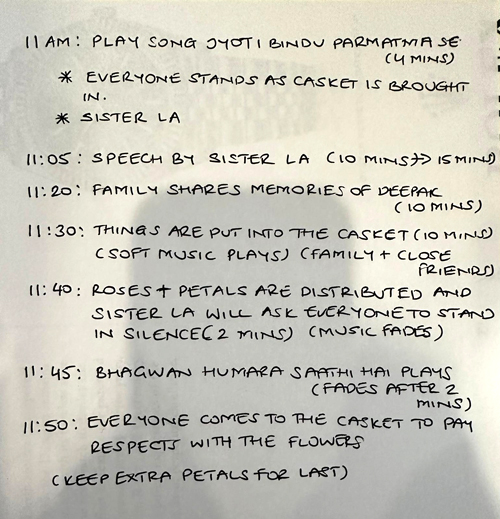 11 AM: PLAY SONG JYOTI BINDU PARMATMA SE
(4 MINS)
* EVERYONE STANDS AS CASKET IS BROUGHT
IN.
* SISTER LA
11:05: SPEECH BY SISTER LA (10 MINS → 15 MINS)
11:20: FAMILY SHARES MEMORIES OF DEEPAK
(10 MINS)
11:30: THINGS ARE PUT INTO THE CASKET (10 MINS)
(SOFT MUSIC PLAYS) (FAMILY + CLOSE
FRIENDS)
11:40: ROSES + PETALS ARE DISTRIBUTED AND
SISTER LA WILL ASK EVERYONE TO STAND
IN SILENCE (2 MINS) (MUSIC FADES)
11:45: BHAGWAN HUMARA SAATHI HAI PLAYS
(FADES AFTER 2
MINS)
11:50: EVERYONE COMES TO THE CASKET TO PAY
RESPECTS WITH THE FLOWERS
(KEEP EXTRA PETALS FOR LAST)